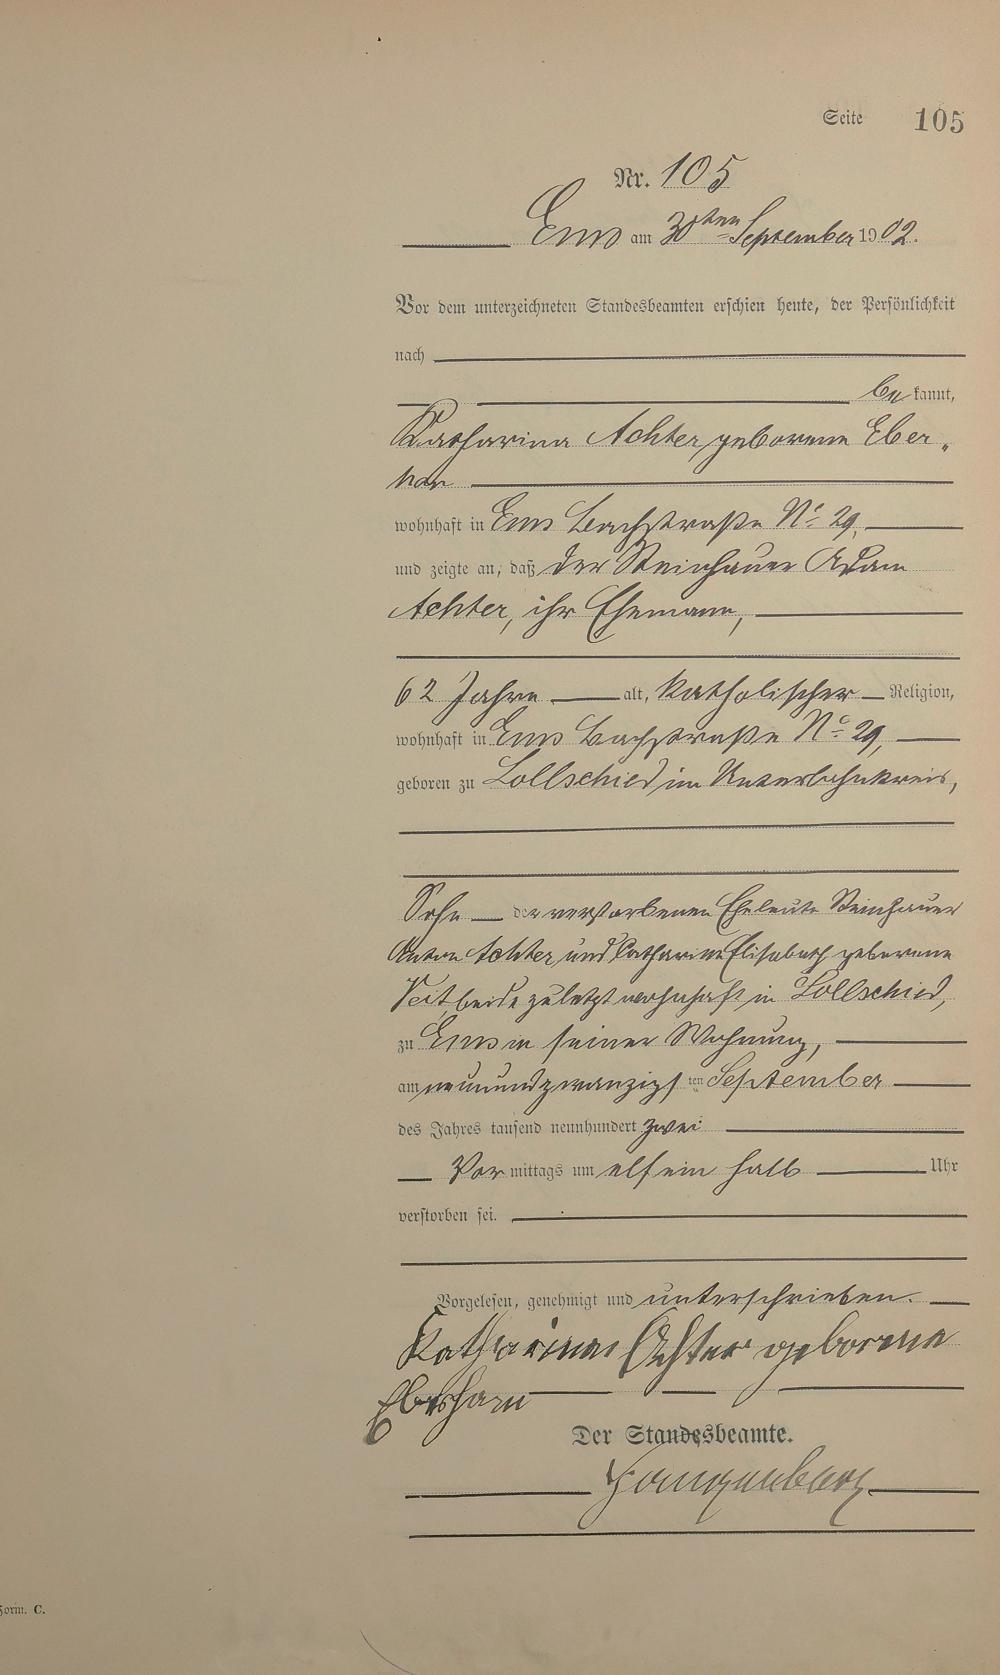 Seite 105
Nr. 105
Ems am 30ten September 1902.
Vor dem unterzeichneten Standesbeamten erschien heute, der Persönlichkeit
nach
be kannt,
Katharina Achter geborene Eber„
han
wohnhaft in Ems Bachstraße No 29,
und zeigte an, daß der Steinhauer Adam
Achter, ihr Ehemann,
62 Jahre alt, katholischer Religion,
wohnhaft in Ems Bachstraße No 29,
geboren zu Lollschied im Unterlahnkreis,
Sohn der verstorbenen Eheleute Steinhauer
Anton Achter und Catharine Elisabeth geborene
Veit, beide zuletzt wohnhaft in Lollschied,
zu Ems in seiner Wohnung,
am neunundzwanzigsten September
des Jahres tausend neunhundert zwei
Vor mittags um elf ein halb Uhr
verstorben sei.
Vorgelesen, genehmigt und unterschrieben.
Katharina Achter geborene
Eberhan
Der Standesbeamte.
Form. C.